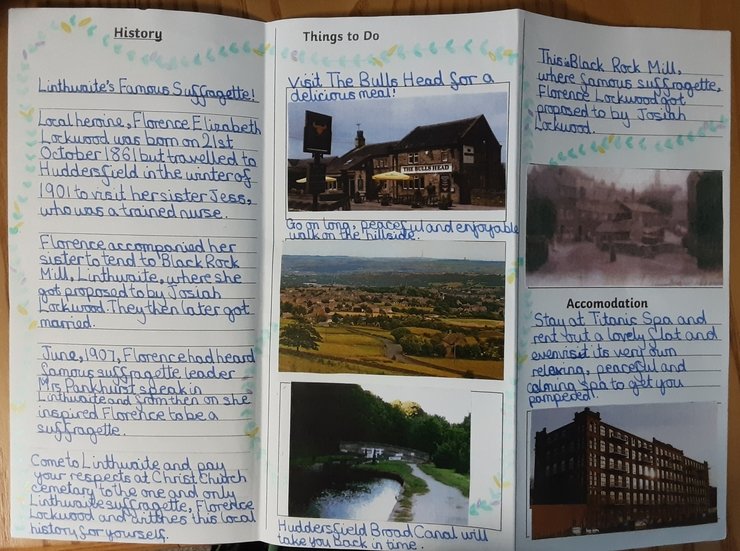 History
Linthwaite's Famous Suffragette!
Local heroine, Florence Elizabeth
Lockwood was born on 21st
October 1861 but travelled to
Huddersfield in the winter of
1901 to visit her sister Jess,
who was a trained nurse.
Florence accompanied her
sister to tend to Black Rock
Mill, Linthwaite, where she
got proposed to by Josiah
Lockwood. They then later got
married.
June, 1907, Florence had heard
famous suffragette leader
Mrs Pankhurst speak in
Linthwaite and from then on she
inspired Florence to be a
suffragette.
Come to Linthwaite and pay
your respects at Christ Church
cemetary to the one and only
Linthwaite suffragette, Florence
Lockwood and this local
history for yourself.
Things to Do
Visit The Bulls Head for a
delicious meal!
THE BULLS HEAD
Go on long, peaceful and enjoyable
walk on the hillside.
Huddersfield Broad Canal will
take you back in time.
This is Black Rock Mill,
where famous suffragette,
Florence Lockwood got
proposed to by Josiah
Lockwood.
Accomodation
Stay at Titanic Spa and
rent out a lovely flat and
even visit its very own
relaxing, peaceful and
calming spa to get you
pampered!